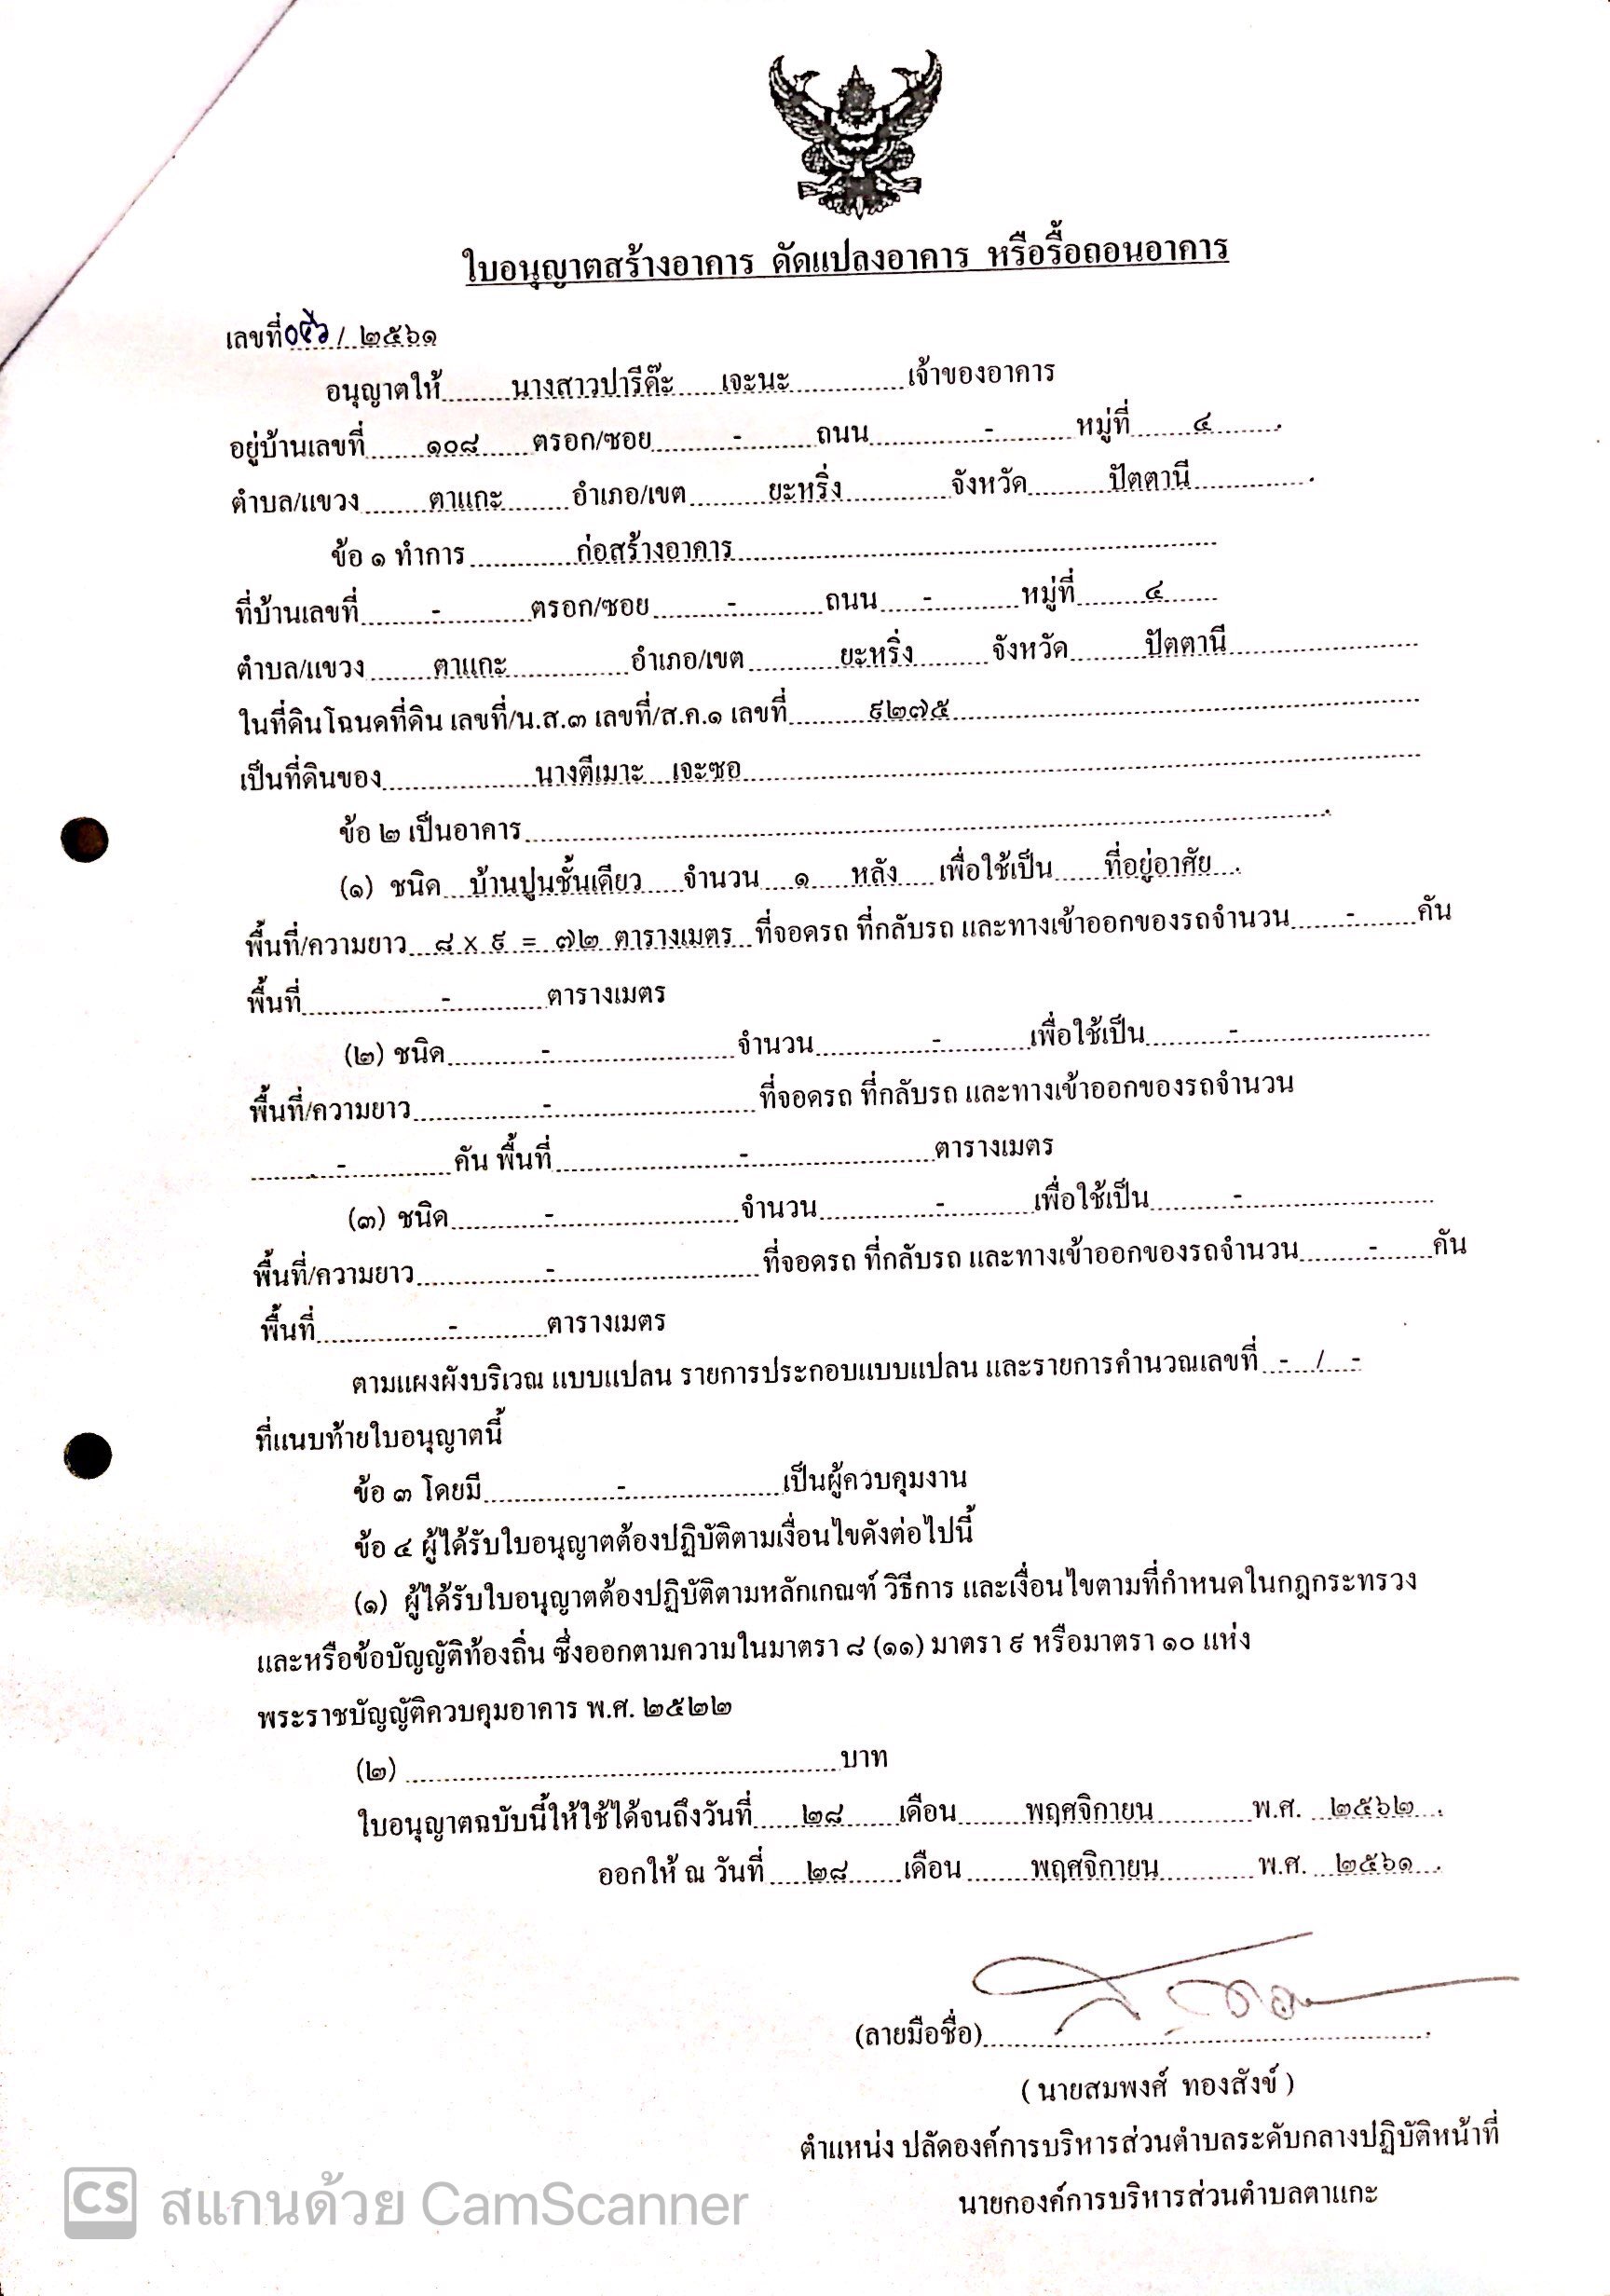 ใบอนุญาตสร้างอาคาร ดัดแปลงอาคาร หรือรื้อถอนอาคาร
เลขที่ ๐๕๖ / ๒๕๖๑
อนุญาตให้ นางสาวปารีด๊ะ เจะนะ เจ้าของอาคาร
อยู่บ้านเลขที่ ๑๐๘ ตรอก/ซอย - ถนน - หมู่ที่ ๔
ตำบล/แขวง ตาแกะ อำเภอ/เขต ยะหริ่ง จังหวัด ปัตตานี
ข้อ ๑ ทำการ ก่อสร้างอาคาร
ที่บ้านเลขที่ - ตรอก/ซอย - ถนน - หมู่ที่ ๔
ตำบล/แขวง ตาแกะ อำเภอ/เขต ยะหริ่ง จังหวัด ปัตตานี
ในที่ดินโฉนดที่ดิน เลขที่/น.ส.๓ เลขที่/ส.ค.๑ เลขที่ ๙๒๗๕
เป็นที่ดินของ นางตีเมาะ เจะซอ
ข้อ ๒ เป็นอาคาร
(๑) ชนิด บ้านปูนชั้นเดียว จำนวน ๑ หลัง เพื่อใช้เป็น ที่อยู่อาศัย
พื้นที่/ความยาว ๘ x ๙ = ๗๒ ตารางเมตร ที่จอดรถ ที่กลับรถ และทางเข้าออกของรถจำนวน - คัน
พื้นที่ - ตารางเมตร
(๒) ชนิด - จำนวน - เพื่อใช้เป็น -
พื้นที่/ความยาว - ที่จอดรถ ที่กลับรถ และทางเข้าออกของรถจำนวน
- คัน พื้นที่ - ตารางเมตร
(๓) ชนิด - จำนวน - เพื่อใช้เป็น -
พื้นที่/ความยาว - ที่จอดรถ ที่กลับรถ และทางเข้าออกของรถจำนวน - คัน
พื้นที่ - ตารางเมตร
ตามแผงผังบริเวณ แบบแปลน รายการประกอบแบบแปลน และรายการคำนวณเลขที่ - / -
ที่แนบท้ายใบอนุญาตนี้
ข้อ ๓ โดยมี - เป็นผู้ควบคุมงาน
ข้อ ๔ ผู้ได้รับใบอนุญาตต้องปฏิบัติตามเงื่อนไขดังต่อไปนี้
(๑) ผู้ได้รับใบอนุญาตต้องปฏิบัติตามหลักเกณฑ์ วิธีการ และเงื่อนไขตามที่กำหนดในกฎกระทรวง
และหรือข้อบัญญัติท้องถิ่น ซึ่งออกตามความในมาตรา ๘ (๑๑) มาตรา ๙ หรือมาตรา ๑๐ แห่ง
พระราชบัญญัติควบคุมอาคาร พ.ศ. ๒๕๒๒
(๒) บาท
ใบอนุญาตฉบับนี้ให้ใช้ได้จนถึงวันที่ ๒๘ เดือน พฤศจิกายน พ.ศ. ๒๕๖๒
ออกให้ ณ วันที่ ๒๘ เดือน พฤศจิกายน พ.ศ. ๒๕๖๑
(ลายมือชื่อ)
( นายสมพงศ์ ทองสังข์ )
ตำแหน่ง ปลัดองค์การบริหารส่วนตำบลระดับกลางปฏิบัติหน้าที่
นายกองค์การบริหารส่วนตำบลตาแกะ
CS สแกนด้วย CamScanner